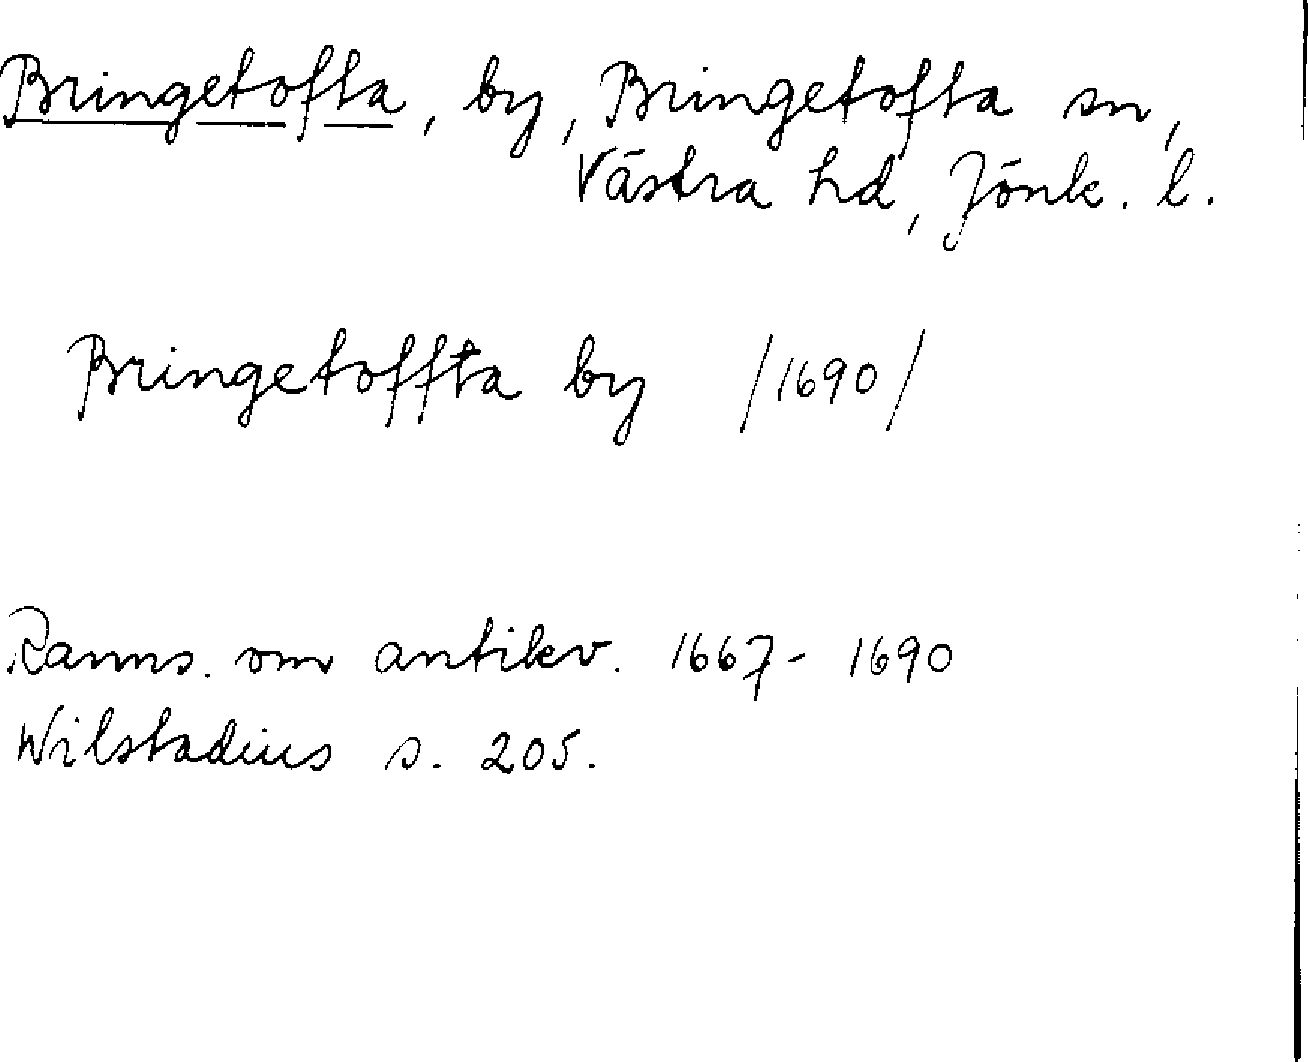 Bringetofta, by, Bringetofta sn,
Västra hd, Jönk. l.
Bringetoffta by /1690/
Ranns. om antikv. 1667-1690
Wilstadius s. 205.